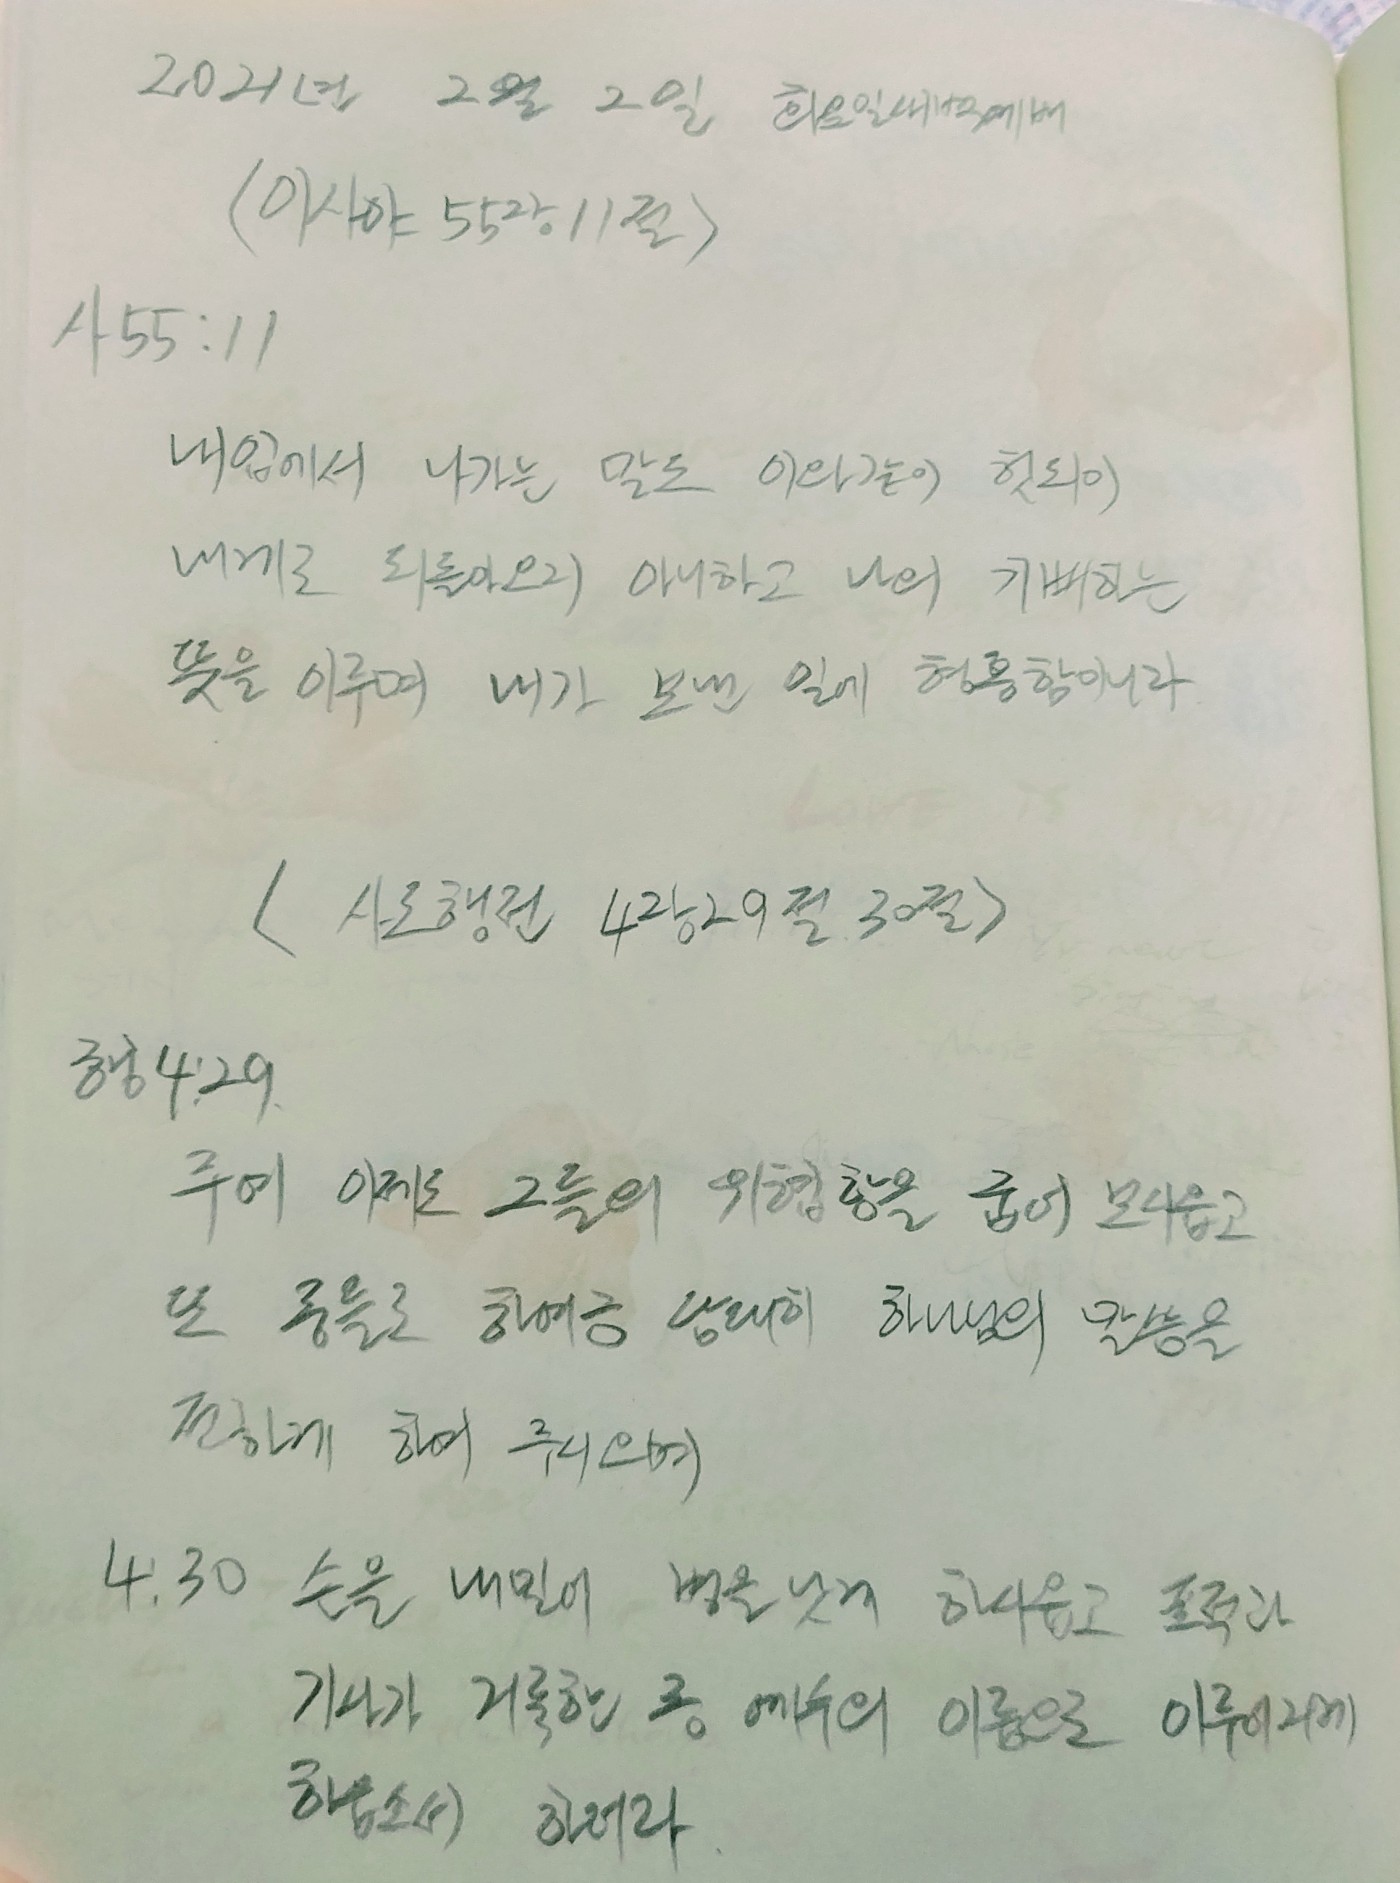 2021년 2월 2일 화요일새벽예배
<이사야 55장11절>
사55:11
내입에서 나가는 말도 이와같이 헛되이
내게로 되돌아오리 아니하고 나의 기뻐하는
뜻을 이루며 내가 보낸 일에 형통함이니라
< 사도행전 4장29절.30절>
행4:29.
주여 이제도 그들의 위협함을 굽어 보시옵고
또 종들로 하여금 담대히 하나님의 말씀을
전하게 하여 주시오며
4:30 손을 내밀어 병을 낫게 하시옵고 표적과
기사가 거룩한 종 예수의 이름으로 이루어지게
하옵소서 하더라.